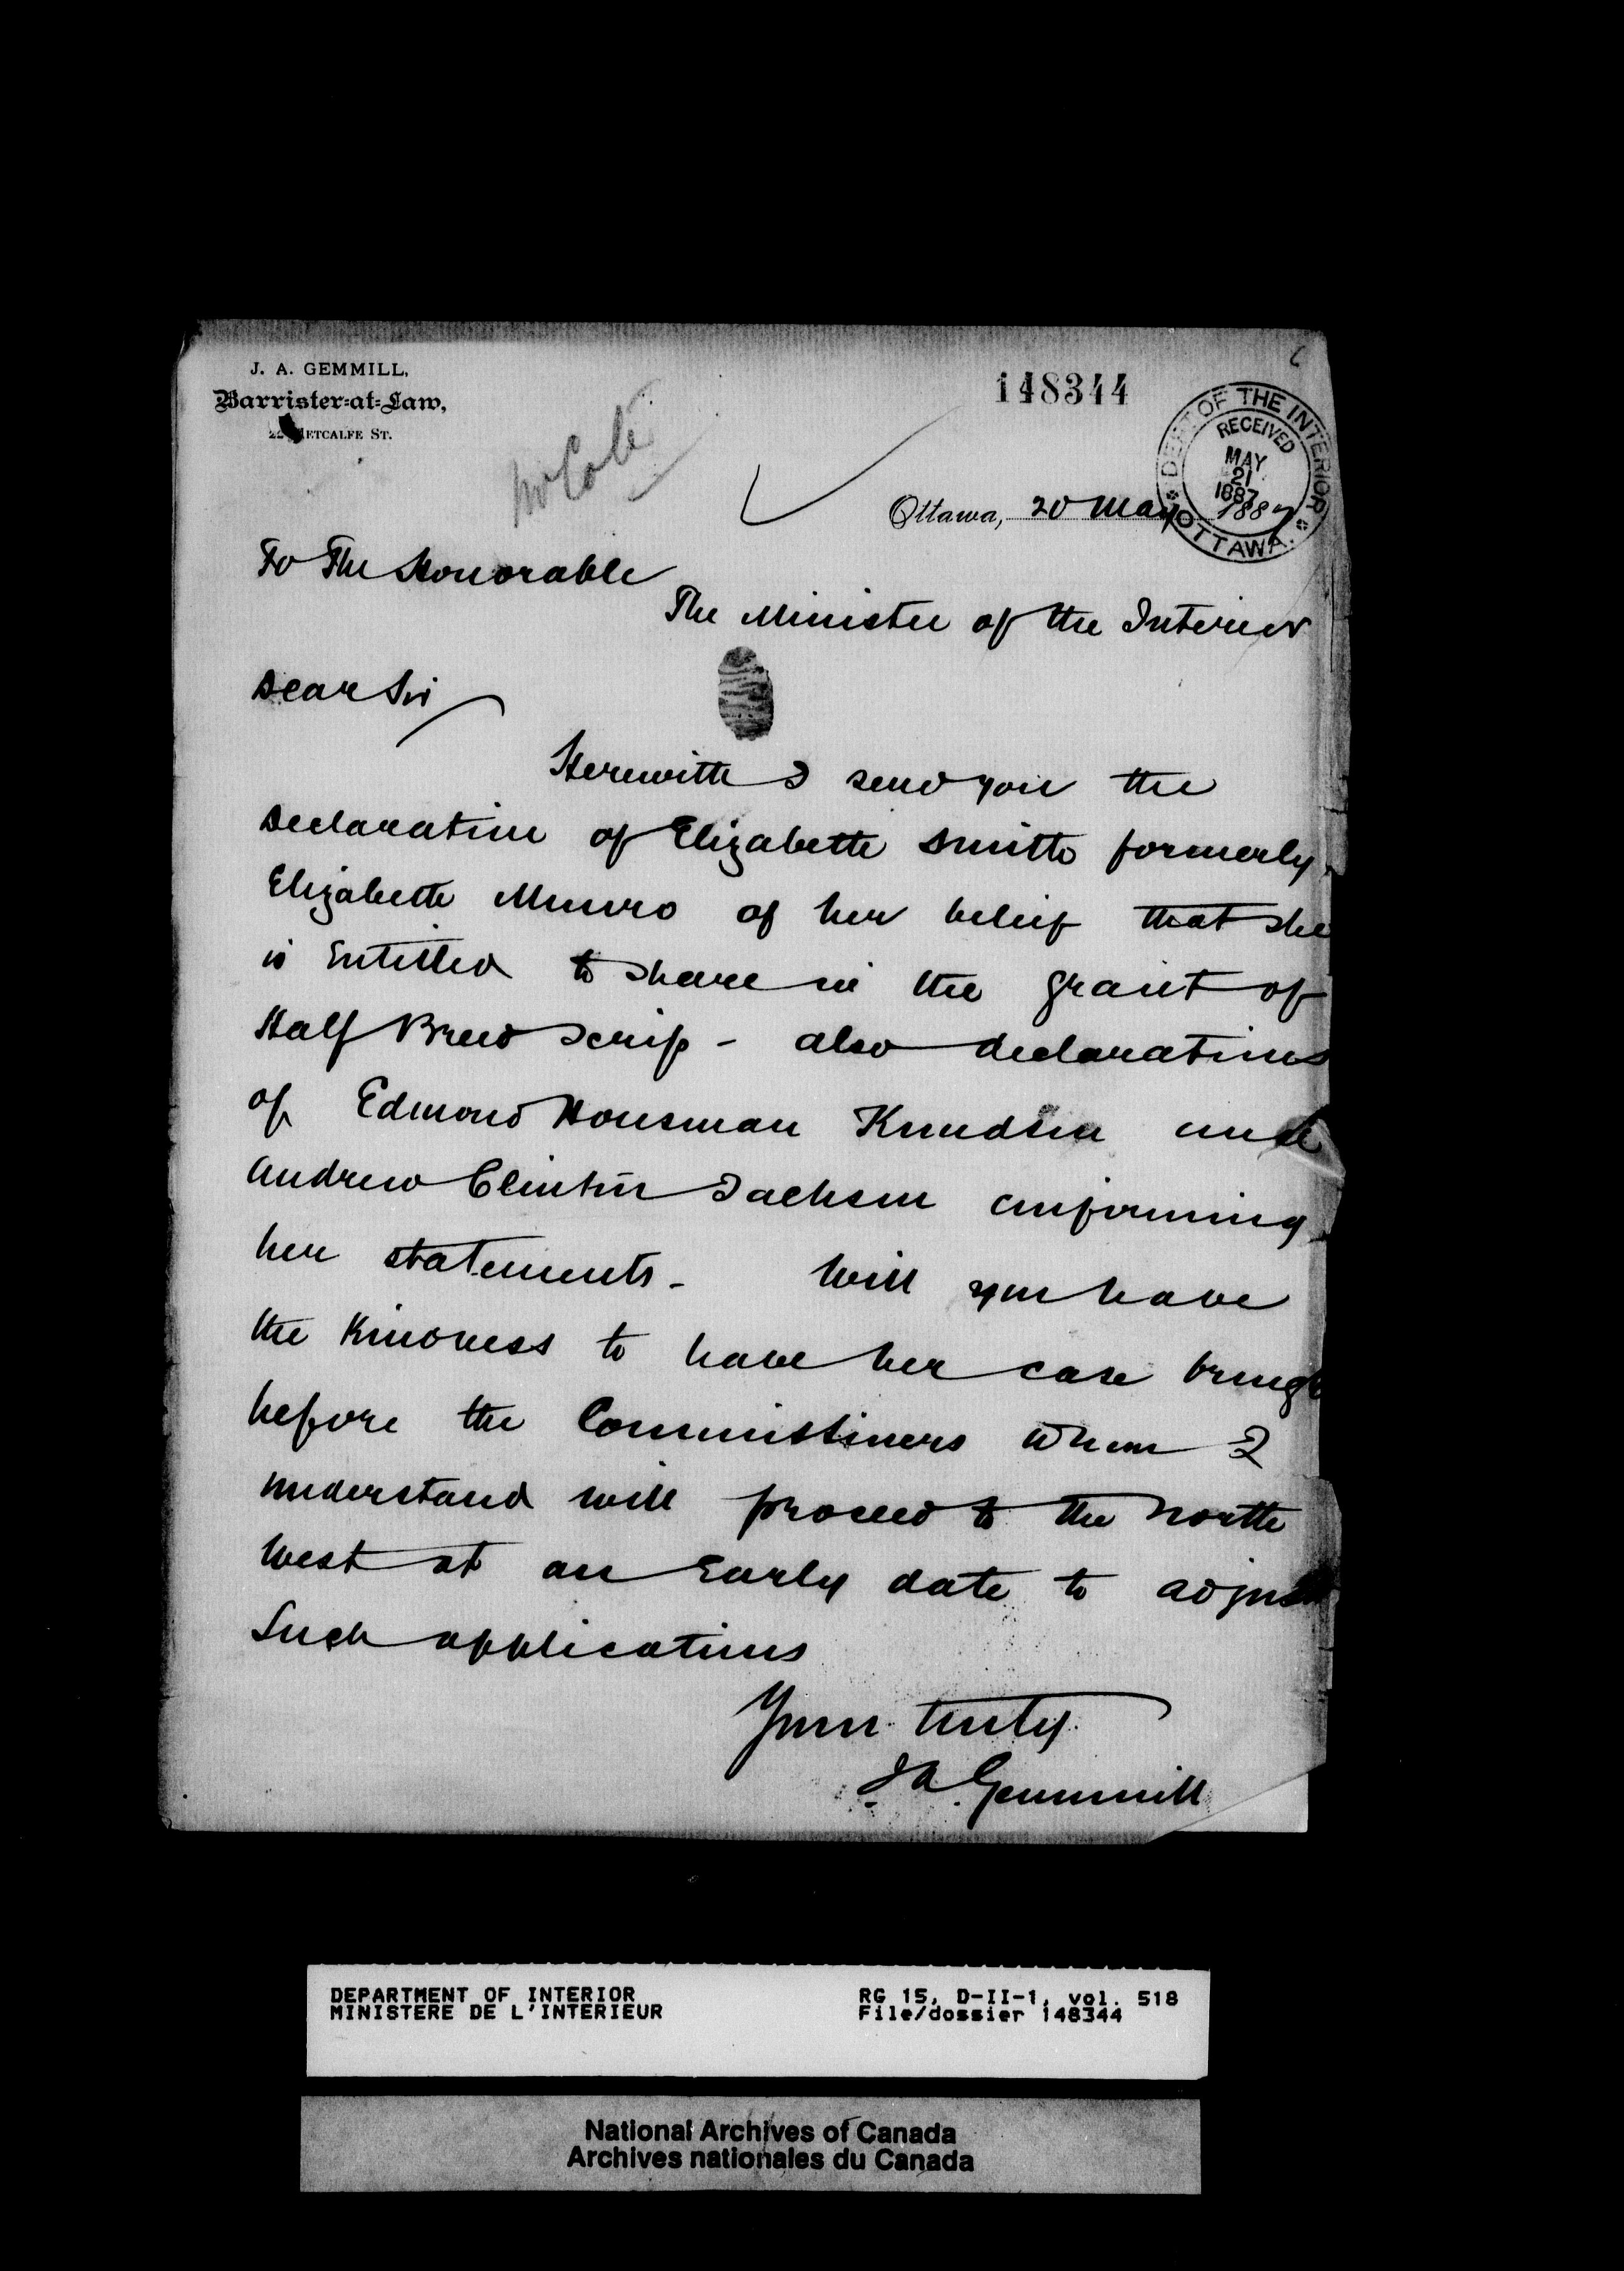 J. A. GEMMILL,
Barrister-at-Law,
METCALFE ST.
148344
DEPT OF THE INTERIOR
RECEIVED
MAY
21
1887
OTTAWA.
Mr Cole
Ottawa, 20 May 1887
To The Honorable
The Minister of the Interior
Dear Sir
Herewith I send you the
declaration of Elizabeth Smith formerly
Elizabeth Munro of her belief that she
is entitled to share in the grant of
Half Breed Scrip - also declarations
of Edmond Housman Knudsen and
Andrew Clinton Jackson confirming
her statements - Will you have
the kindness to have her case brough
before the Commissioners whom I
understand will proceed to the North
West at an early date to adjust
Such applications
Yours truly
J A Gemmill
DEPARTMENT OF INTERIOR
MINISTERE DE L'INTERIEUR
RG 15, D-II-1, vol. 518
File/dossier 148344
National Archives of Canada
Archives nationales du Canada